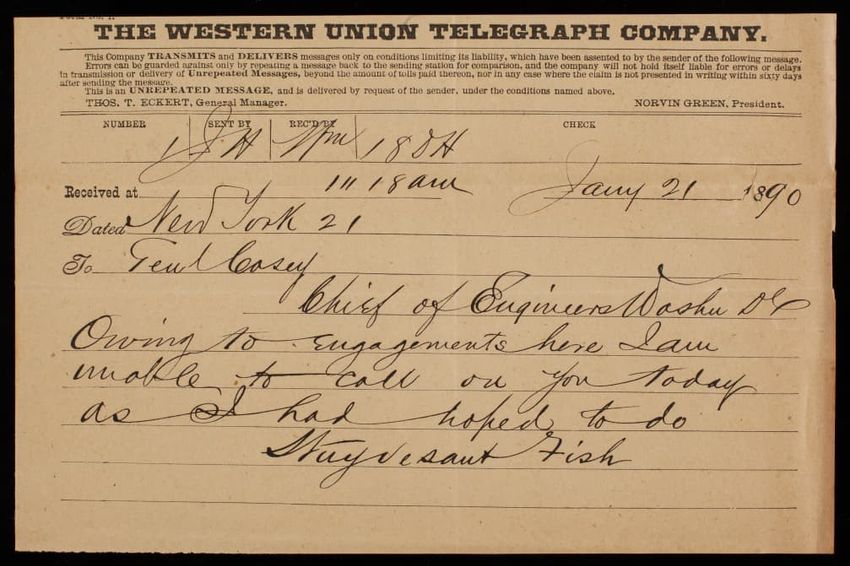 THE WESTERN UNION TELEGRAPH COMPANY.
This Company TRANSMITS and DELIVERS messages only on conditions limiting its liability, which have been assented to by the sender of the following message.
Errors can be guarded against only by repeating a message back to the sending station for comparison, and the company will not hold itself liable for errors or delays
in transmission or delivery of Unrepeated Messages, beyond the amount of tolls paid thereon, nor in any case where the claim is not presented in writing within sixty days
after sending the message.
This is an UNREPEATED MESSAGE, and is delivered by request of the sender, under the conditions named above.
THOS. T. ECKERT, General Manager. NORVIN GREEN, President.
NUMBER SENT BY REC'D BY CHECK
1 H 18 DH
Received at 11 18 am Jany 21 1890
Dated New York 21
To Genl Casey
Chief of Engineers Washn DC
Owing to engagements here I am
unable to call on you today
as I had hoped to do
Stuyvesant Fish